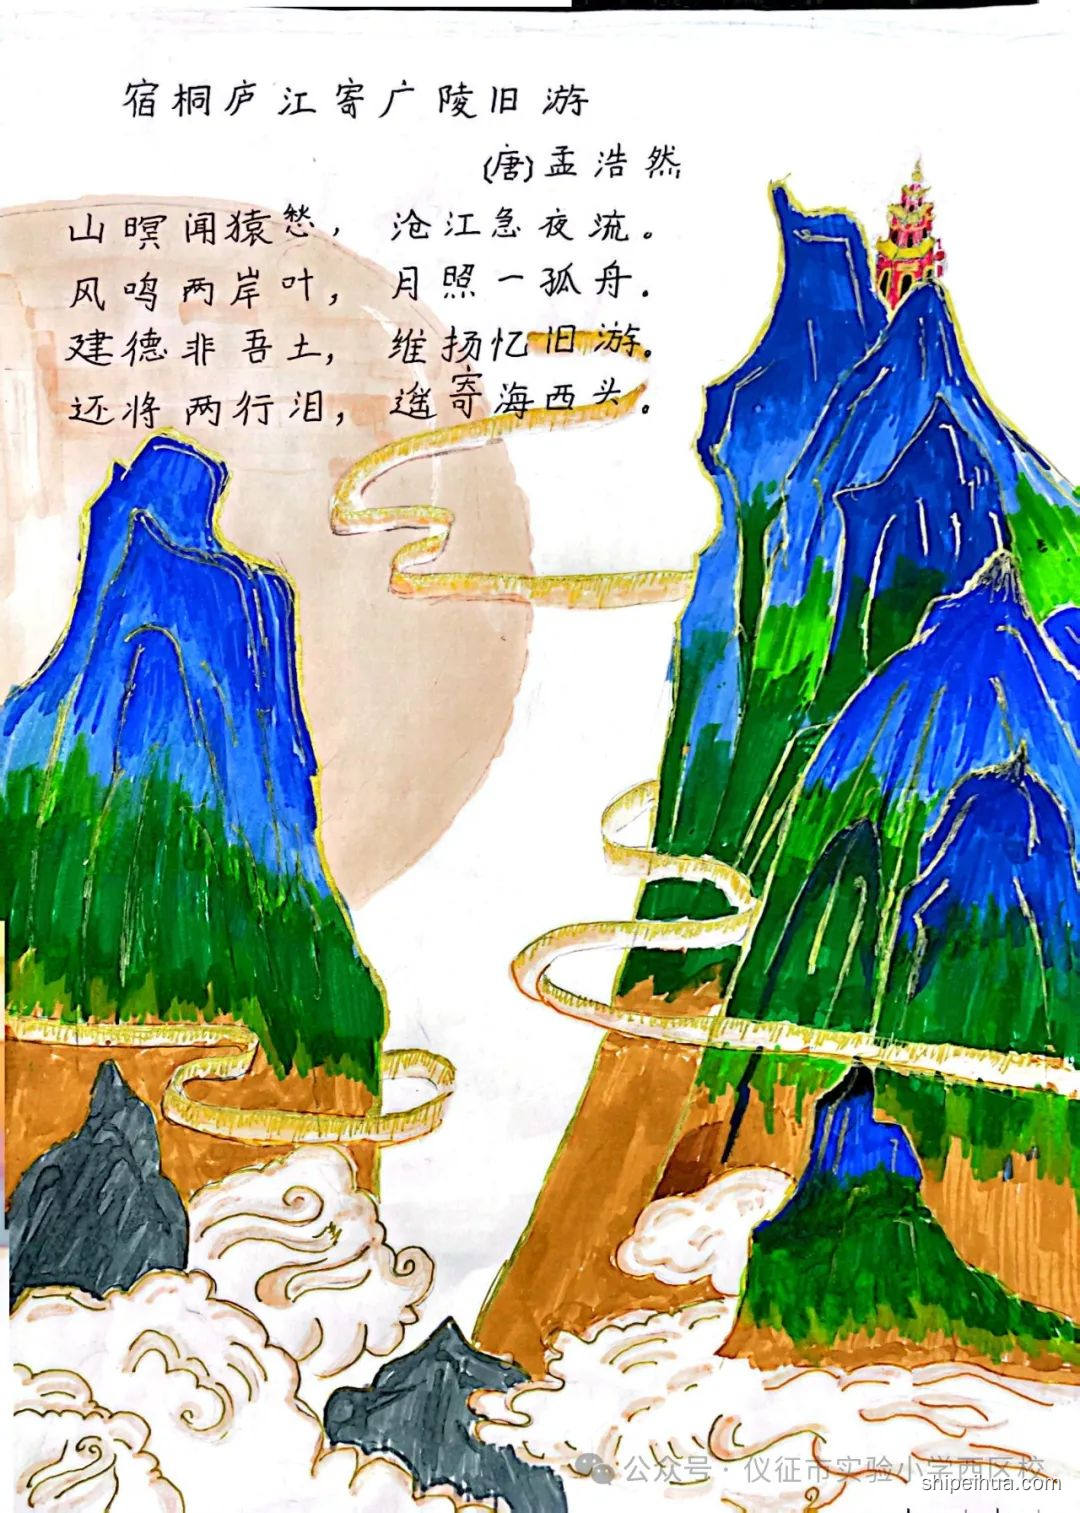 宿桐庐江寄广陵旧游
(唐)孟浩然
山暝闻猿愁，沧江急夜流。
风鸣两岸叶，月照一孤舟.
建德非吾土，维扬忆旧游。
还将两行泪，遥寄海西头。
公众号·仪征市实验小学西区校
shipeihua.com